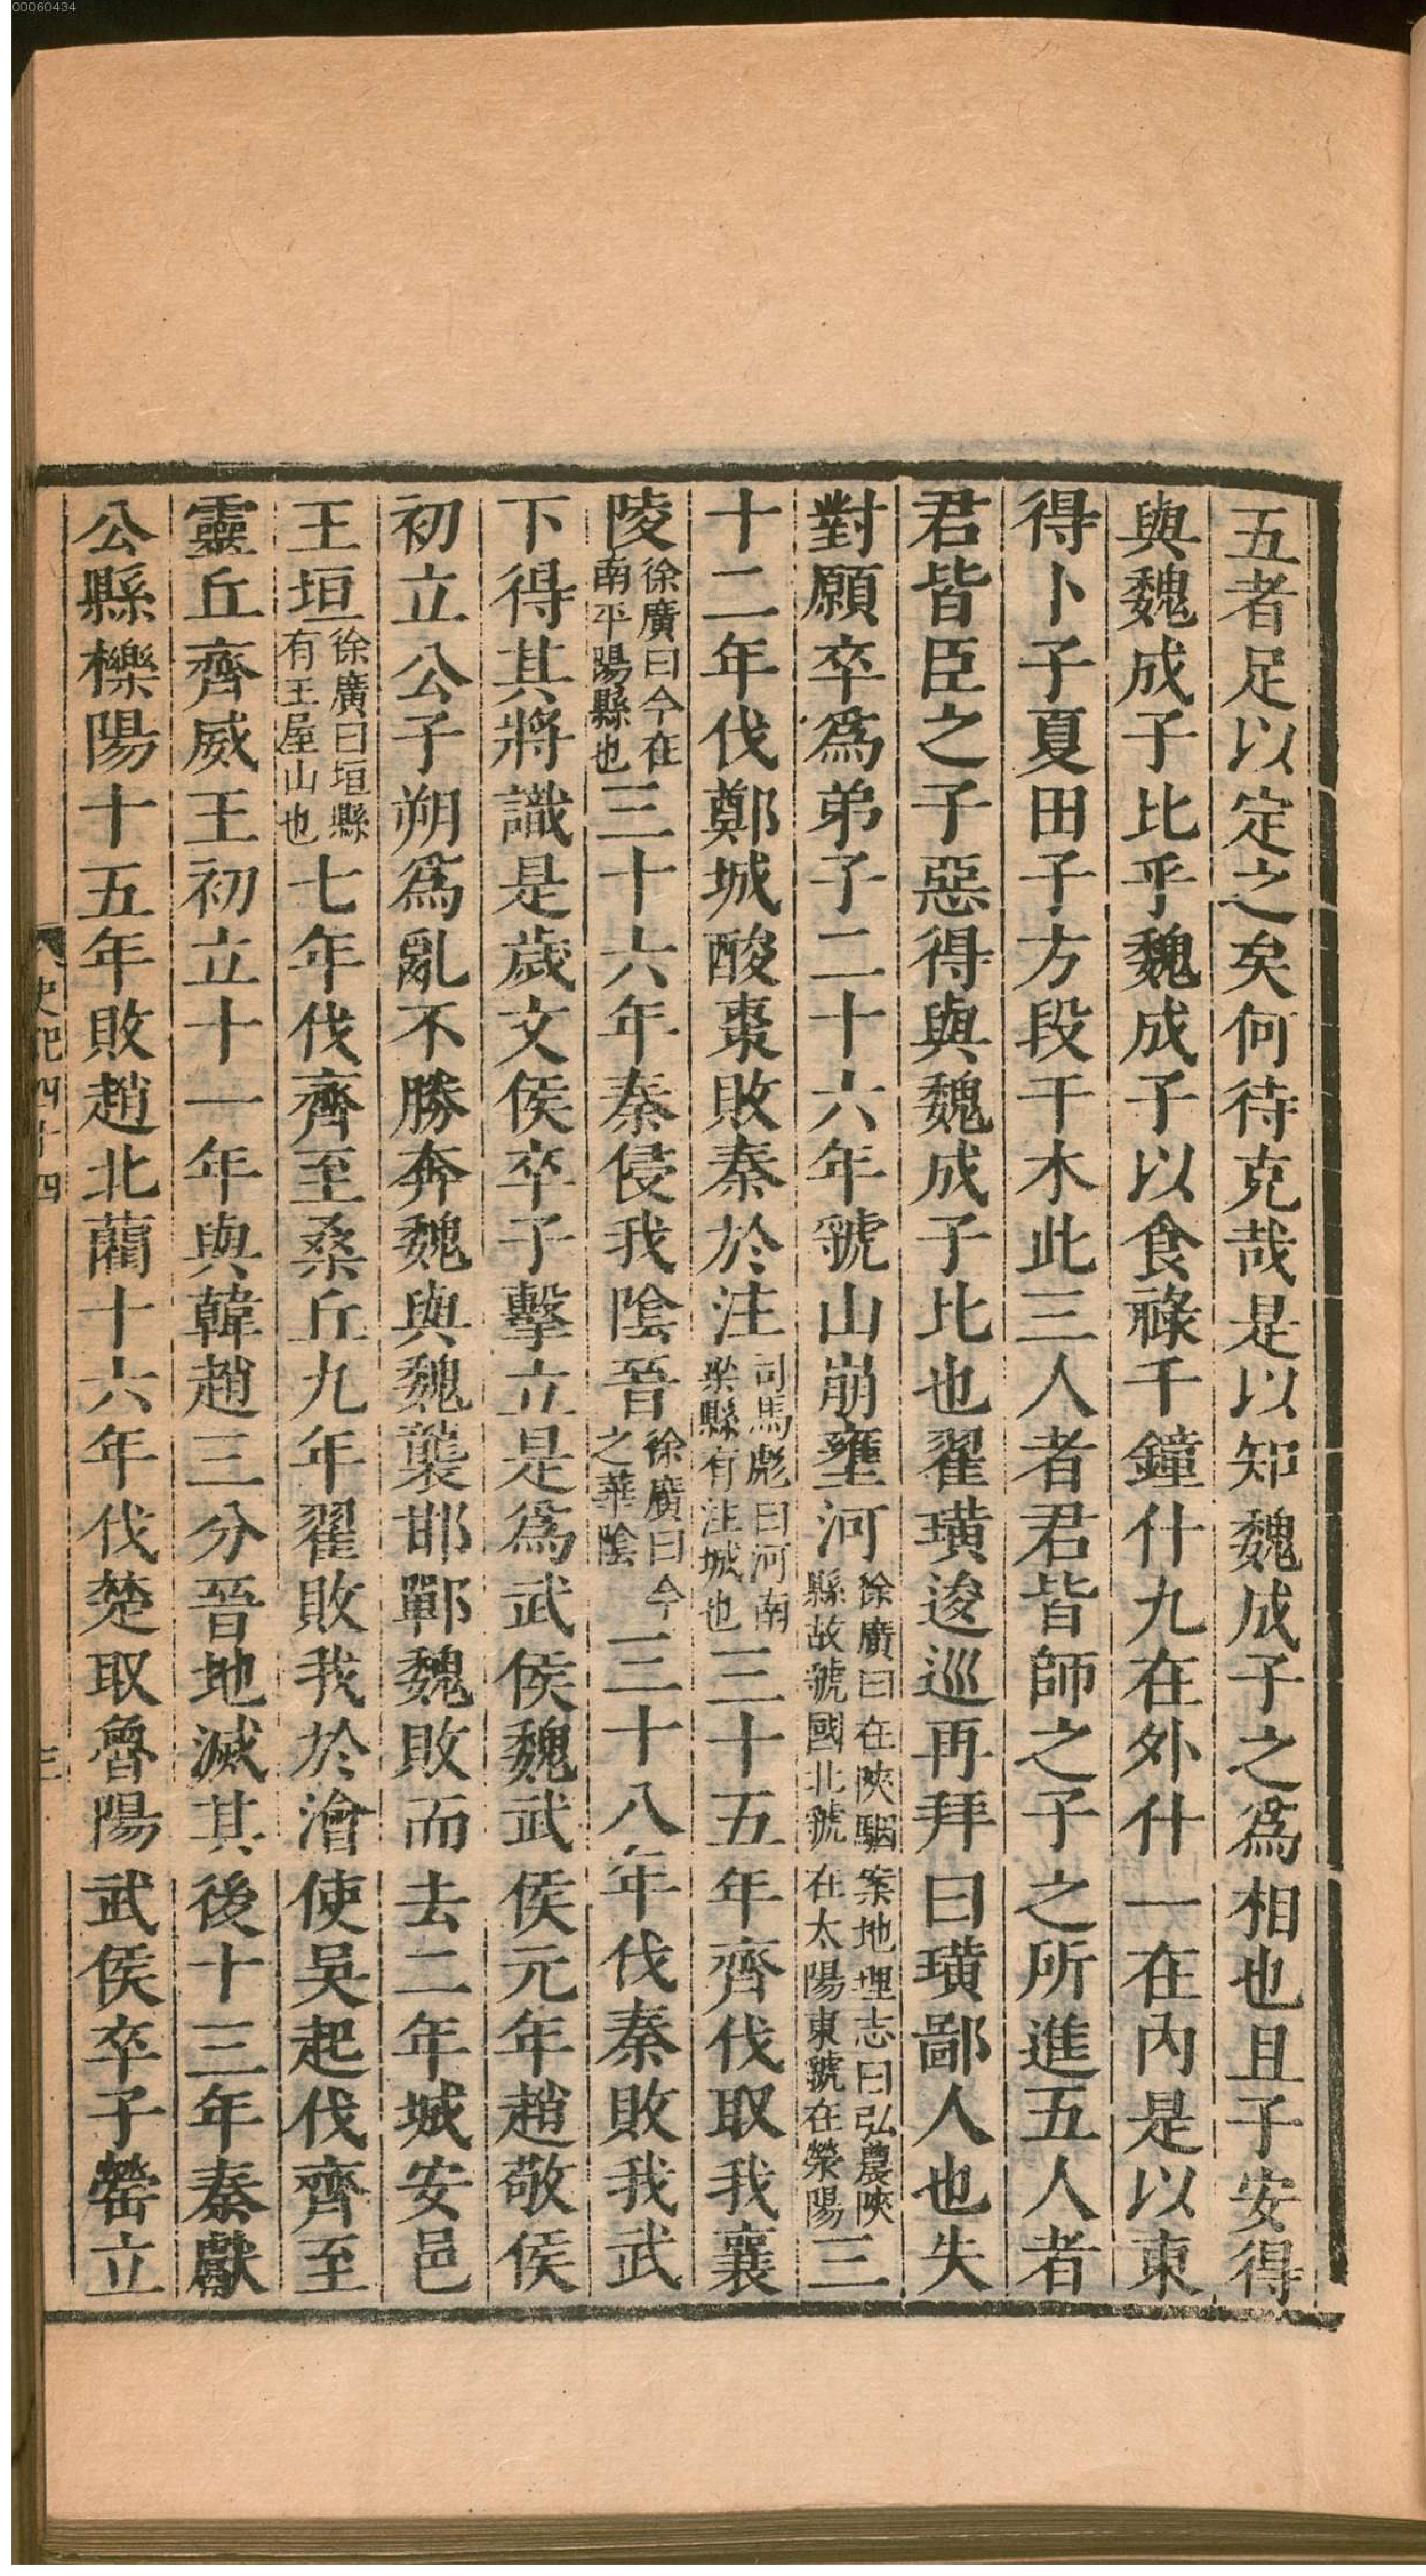 00060434
五者足以定之矣何待克哉是以知魏成子之爲相也且子安得
與魏成子比乎魏成子以食祿千鐘什九在外什一在內是以東
得卜子夏田子方段干木此三人者君皆師之子之所進五人者
君皆臣之子惡得與魏成子比也翟璜逡巡再拜曰璜鄙人也失
對願卒爲弟子二十六年虢山崩壅河徐廣曰在陝駰案地理志曰弘農陝縣故虢國北虢在太陽東虢在滎陽三
十二年伐鄭城酸棗敗秦於注司馬彪曰河南梁縣有注城也三十五年齊伐取我襄
陵徐廣曰今在南平陽縣也三十六年秦侵我陰晉徐廣曰今之華陰三十八年伐秦敗我武
下得其將識是歲文侯卒子擊立是爲武侯魏武侯元年趙敬侯
初立公子朔爲亂不勝奔魏與魏襲邯鄲魏敗而去二年城安邑
王垣徐廣曰垣縣有王屋山也七年伐齊至桑丘九年翟敗我於澮使吳起伐齊至
靈丘齊威王初立十一年與韓趙三分晉地滅其後十三年秦獻
公縣櫟陽十五年敗趙北藺十六年伐楚取魯陽武侯卒子罃立
史記四十四
三